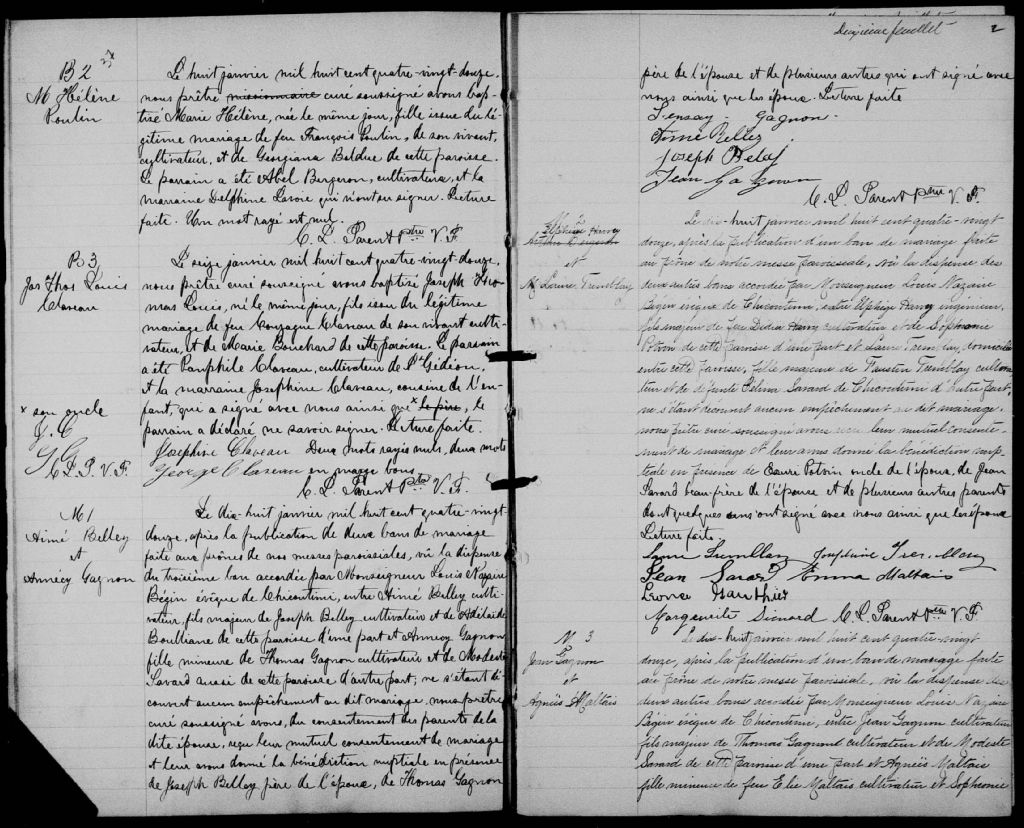 B 2
M Hélène
Poulin
Le huit janvier mil huit cent quatre-vingt-douze,
nous prêtre missionnaire curé soussigné avons bap-
tisé Marie Hélène, née le même jour, fille issue du lé-
gitime mariage de feu François Poulin, de son vivant,
cultivateur, et de Georgiana Bolduc de cette paroisse.
Le parrain a été Abel Bergeron, cultivateur, et la
marraine Delphine Lavoie qui n'ont su signer. Lecture
faite. Un mot rayé est nul.
C. L. Parent Ptre V. F.
B 3
Jos Thos Louis
Claveau
Le seize janvier mil huit cent quatre-vingt-douze,
nous prêtre curé soussigné avons baptisé Joseph Tho-
mas Louis, né le même jour, fils issu du légitime
mariage de feu Gonzague Claveau de son vivant culti-
vateur, et de Marie Bouchard de cette paroisse. Le parrain
a été Pamphile Claveau, cultivateur de St Gédéon,
et la marraine Josephine Claveau, cousine de l'en-
fant, qui a signé avec nous ainsi que x le père, le
parrain a déclaré ne savoir signer. Lecture faite.
x son oncle
J. C
G. C
C. L. P. V. F.
Josephine Claveau Deux mots rayés nuls, deux mots
George Claveau en marge bons.
C. L. Parent Ptre V. F.
M 1
Aimé Belley
et
Annécy Gagnon
Le dix-huit janvier mil huit cent quatre-vingt-
douze, après la publication de deux bans de mariage
faite aux prônes de nos messes paroissiales, vû la dispense
du troisième ban accordée par Monseigneur Louis Nazaire
Bégin évêque de Chicoutimi, entre Aimé Belley culti-
vateur, fils majeur de Joseph Belley cultivateur et de Adelaide
Boullianne de cette paroisse d'une part et Annecy Gagnon
fille mineure de Thomas Gagnon cultivateur et de Modeste
Savard aussi de cette paroisse d'autre part; ne s'étant dé-
couvert aucun empêchement au dit mariage, nous prêtre
curé soussigné avons, du consentement des parents de la
dite épouse, reçu leur mutuel consentement de mariage
et leur avons donné la bénédiction nuptiale en présence
de Joseph Belley père de l'époux, de Thomas Gagnon
Deuxième feuillet 2
père de l'épouse et de plusieurs autres qui ont signé avec
nous ainsi que les époux. Lecture faite
Gagnon.
Aimé Belley
Joseph
Jean Gagnon
C. L. Parent Ptre V. F.
M 2
Elphège Harvy
et
M. Laure Tremblay
Le dix-huit janvier mil huit cent quatre-vingt-
douze, après la publication d'un ban de mariage faite
au prône de notre messe paroissiale, vû la dispense des
deux autres bans accordée par Monseigneur Louis Nazaire
Bégin évêque de Chicoutimi, entre Elphège Harvy ingénieur,
fils majeur de feu Didier Harvy cultivateur et de Sophronie
Potvin de cette paroisse d'une part et Laure Tremblay, domiciliée
en cette paroisse, fille majeure de Faustin Tremblay cultiva-
teur et de défunte Selma Savard de Chicoutimi d'autre part,
ne s'étant découvert aucun empêchement au dit mariage,
nous prêtre curé soussigné avons reçu leur mutuel consente-
ment de mariage et leur avons donné la bénédiction nup-
tiale en présence de Potvin oncle de l'époux, de Jean
Savard beau-frère de l'épouse et de plusieurs autres parents
dont quelques uns ont signé avec nous ainsi que les époux
Lecture faite.
Laure Tremblay Josephine Tremblay
Jean Savard Emma Maltais
Leonce Gauthier
Marguerite Simard C. L. Parent Ptre V. F.
M 3
Jean Gagnon
et
Agnès Maltais
Le dix-huit janvier mil huit cent quatre-vingt
douze, après la publication d'un ban de mariage faite
au prône de notre messe paroissiale, vû la dispense des
deux autres bans accordée par Monseigneur Louis Nazaire
Bégin évêque de Chicoutimi, entre Jean Gagnon cultivateur
fils majeur de Thomas Gagnon cultivateur et de Modeste
Savard de cette paroisse d'une part et Agnès Maltais
fille mineure de feu Elie Maltais cultivateur et Sophronie